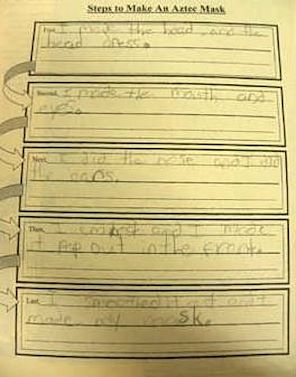 Steps to Make An Aztec Mask
First, I made the head, and the
head dress.
Second, I made the mouth and
eyes.
Next, I did the nose and I did
the ears.
Then, I and I made
it pop out in the front.
Last, I smoothed it out and I
made my mask.